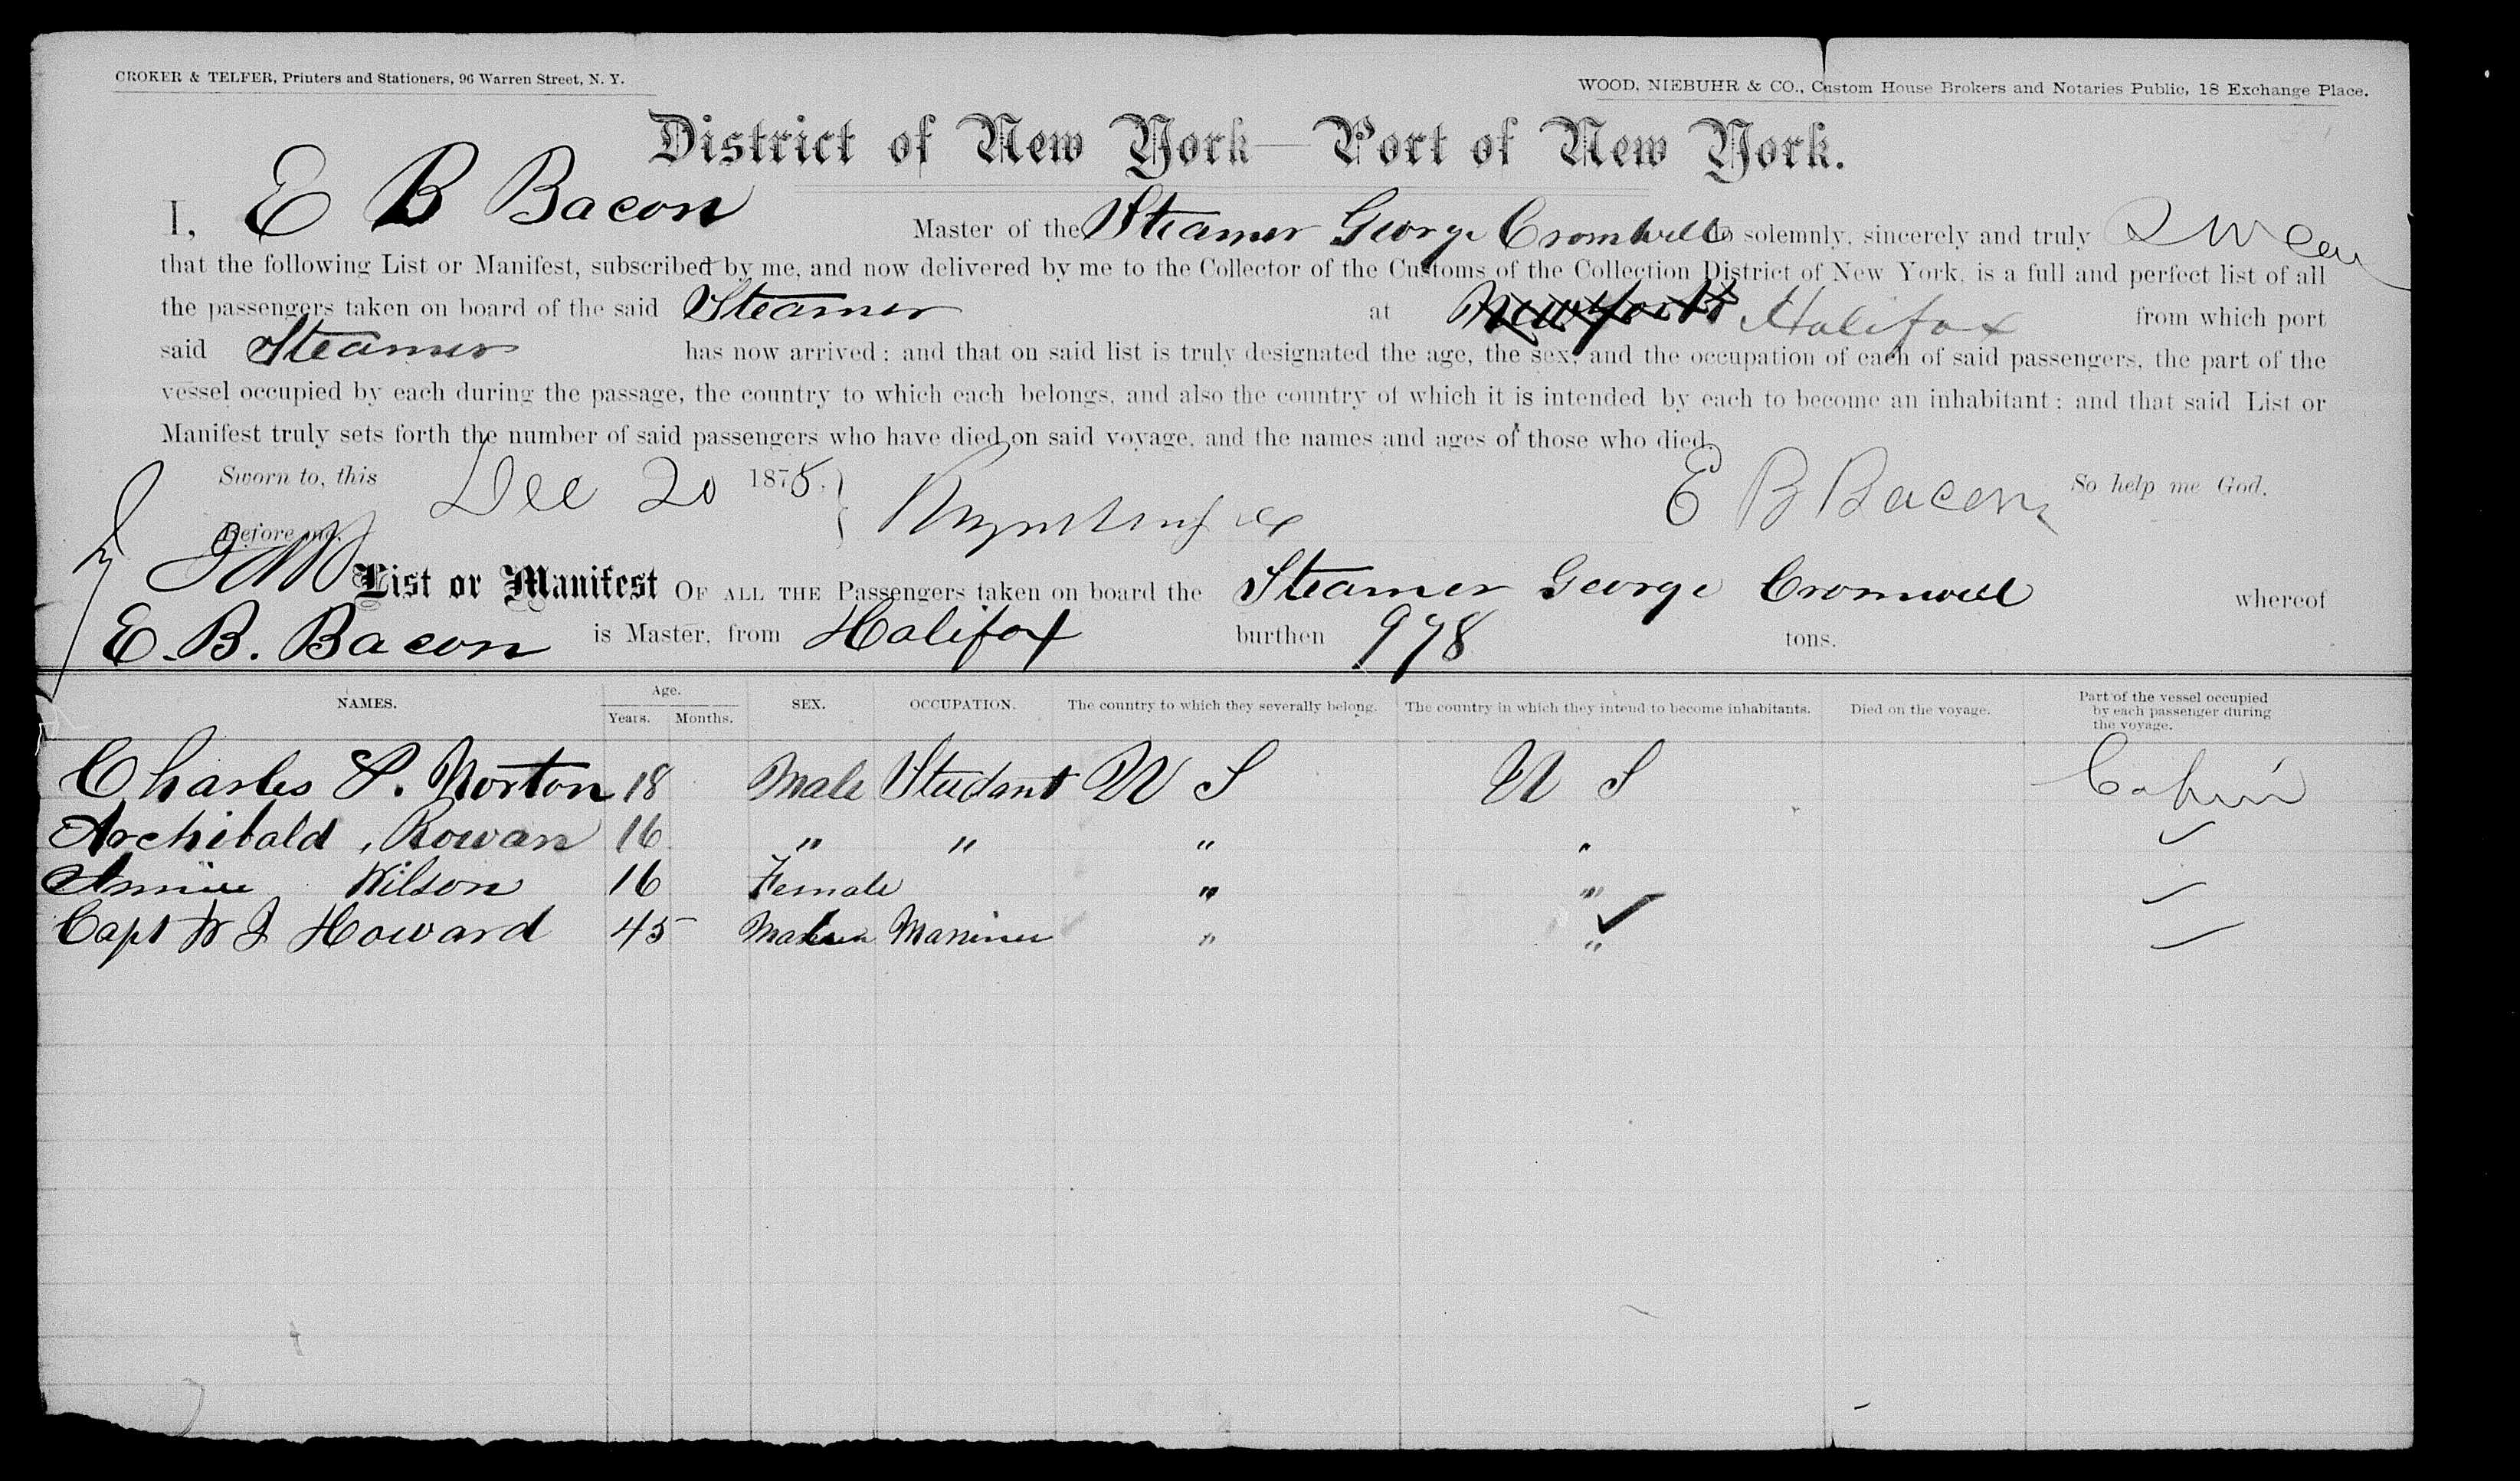 CROKER & TELFER, Printers and Stationers, 96 Warren Street, N. Y.
WOOD, NIEBUHR & CO., Custom House Brokers and Notaries Public, 18 Exchange Place.
District of New York—Port of New York.
I, E B Bacon Master of the Steamer George Cromwell do solemnly, sincerely and truly Swear
that the following List or Manifest, subscribed by me, and now delivered by me to the Collector of the Customs of the Collection District of New York, is a full and perfect list of all
the passengers taken on board of the said Steamer at Halifax from which port
said Steamer has now arrived; and that on said list is truly designated the age, the sex, and the occupation of each of said passengers, the part of the
vessel occupied by each during the passage, the country to which each belongs, and also the country of which it is intended by each to become an inhabitant; and that said List or
Manifest truly sets forth the number of said passengers who have died on said voyage, and the names and ages of those who died.
Sworn to, this Dec 20 1875. E B Bacon So help me God.
Before me,
List or Manifest OF ALL THE Passengers taken on board the Steamer George Cromwell whereof
E. B. Bacon is Master, from Halifax burthen 978 tons.
NAMES. Age. Years. Months. SEX. OCCUPATION. The country to which they severally belong. The country in which they intend to become inhabitants. Died on the voyage. Part of the vessel occupied by each passenger during the voyage.
Charles P. Norton 18 Male Studant U S U S Cabin
Archibald Rowan 16 " " " "
Annie Wilson 16 Female " "
Capt W J Howard 45 Male Mariner " "